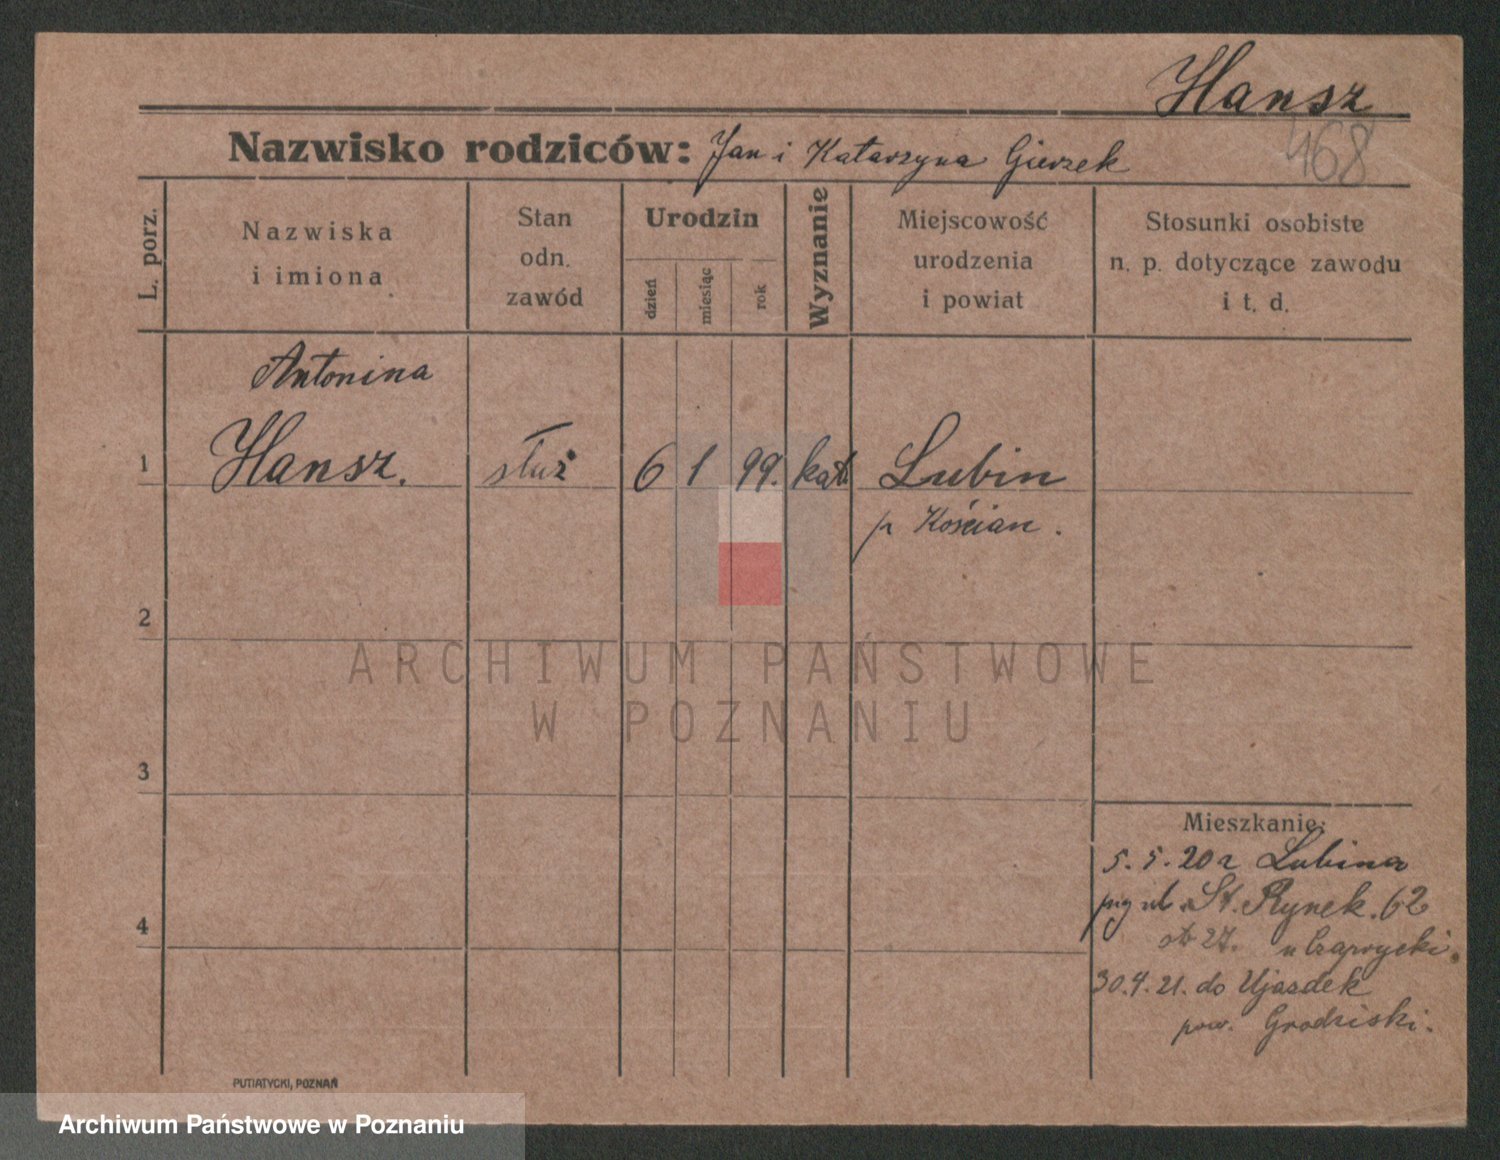 Hansz
468
Nazwisko rodziców: Jan i Katarzyna Gierzek
L. porz.
Nazwiska
i imiona
Stan
odn.
zawód
Urodzin
dzień
miesiąc
rok
Wyznanie
Miejscowość
urodzenia
i powiat
Stosunki osobiste
n. p. dotyczące zawodu
i t. d.
Antonina
1 Hansz. służ 6 1 99. kat. Lubin
p Kościan.
2
ARCHIWUM PAŃSTWOWE
W POZNANIU
3
Mieszkanie:
5.5.20 z Lubina
St. Rynek. 62
27. u
4
30.4.21. do Ujazdek
pow. Grodziski.
PUTIATYCKI, POZNAŃ
Archiwum Państwowe w Poznaniu